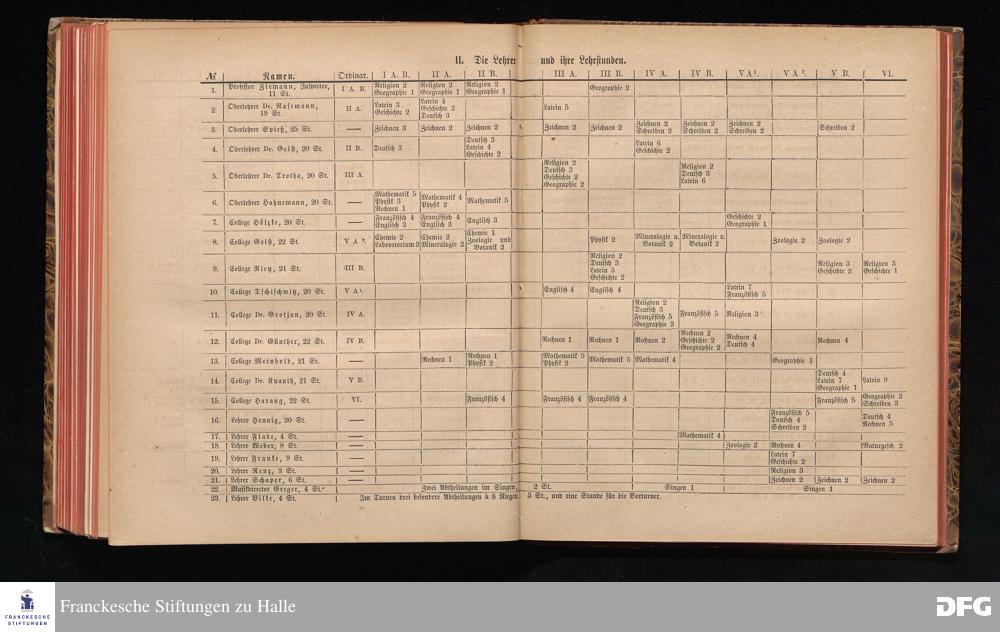 II. Die Lehrer und ihre Lehrstunden.
№ Namen. Ordinar. I A. B. II A. II B. III A. III B. IV A. IV B. V A¹. V A². V B. VI.
1. Professor Ziemann, Inspector, 11 St. I A. B. Religion 2 Geographie 1 Religion 2 Geographie 1 Religion 2 Geographie 1 Geographie 2
2. Oberlehrer Dr. Rasemann, 19 St. II A. Latein 3 Geschichte 2 Latein 4 Geschichte 2 Deutsch 3 Latein 5
3. Oberlehrer Spieß, 25 St. — Zeichnen 3 Zeichnen 2 Zeichnen 2 Zeichnen 2 Zeichnen 2 Zeichnen 2 Schreiben 2 Zeichnen 2 Schreiben 2 Zeichnen 2 Schreiben 2 Schreiben 2
4. Oberlehrer Dr. Geist, 20 St. II B. Deutsch 3 Deutsch 3 Latein 4 Geschichte 2 Latein 6 Geschichte 2
5. Oberlehrer Dr. Trotha, 20 St. III A. Religion 2 Deutsch 3 Geschichte 2 Geographie 2 Religion 2 Deutsch 3 Latein 6
6. Oberlehrer Hahnemann, 20 St. — Mathematik 5 Physik 3 Rechnen 1 Mathematik 4 Physik 2 Mathematik 5
7. College Hölzke, 20 St. — Französisch 4 Englisch 3 Französisch 4 Englisch 3 Englisch 3 Geschichte 2 Geographie 1
8. College Geist, 22 St. V A². Chemie 2 Laboratorium 3 Chemie 2 Mineralogie 2 Chemie 1 Zoologie und Botanik 2 Physik 2 Mineralogie u. Botanik 2 Mineralogie u. Botanik 2 Zoologie 2 Zoologie 2
9. College Rietz, 21 St. III B. Religion 2 Deutsch 3 Latein 5 Geschichte 2 Religion 3 Geschichte 2 Religion 3 Geschichte 1
10. College Tschischwitz, 20 St. V A¹. Englisch 4 Englisch 4 Latein 7 Französisch 5
11. College Dr. Grotjan, 20 St. IV A. Religion 2 Deutsch 3 Französisch 5 Geographie 2 Französisch 5 Religion 3
12. College Dr. Günther, 22 St. IV B. Rechnen 1 Rechnen 1 Rechnen 2 Rechnen 2 Geschichte 2 Geographie 2 Rechnen 4 Deutsch 4 Rechnen 4
13. College Meinhold, 21 St. — Rechnen 1 Rechnen 1 Physik 2 Mathematik 5 Physik 2 Mathematik 5 Mathematik 4 Geographie 1
14. College Dr. Knauth, 21 St. V B. Deutsch 4 Latein 7 Geographie 1 Latein 9
15. College Harang, 22 St. VI. Französisch 4 Französisch 4 Französisch 4 Französisch 5 Geographie 2 Schreiben 3
16. Lehrer Hennig, 20 St. — Französisch 5 Deutsch 4 Schreiben 2 Deutsch 4 Rechnen 5
17. Lehrer Flade, 4 St. — Mathematik 4
18. Lehrer Weber, 8 St. — Zoologie 2 Rechnen 4 Naturgesch. 2
19. Lehrer Franke, 9 St. — Latein 7 Geschichte 2
20. Lehrer Renz, 3 St. — Religion 3
21. Lehrer Schaper, 6 St. — Zeichnen 2 Zeichnen 2 Zeichnen 2
22. Musikdirector Greger, 4 St. Zwei Abtheilungen im Singen, 2 St. Singen 1 Singen 1
23. Lehrer Bilke, 4 St. Im Turnen drei besondere Abtheilungen à 8 Riegen 3 St., und eine Stunde für die Vorturner.
FRANCKESCHE
STIFTUNGEN
Franckesche Stiftungen zu Halle
DFG